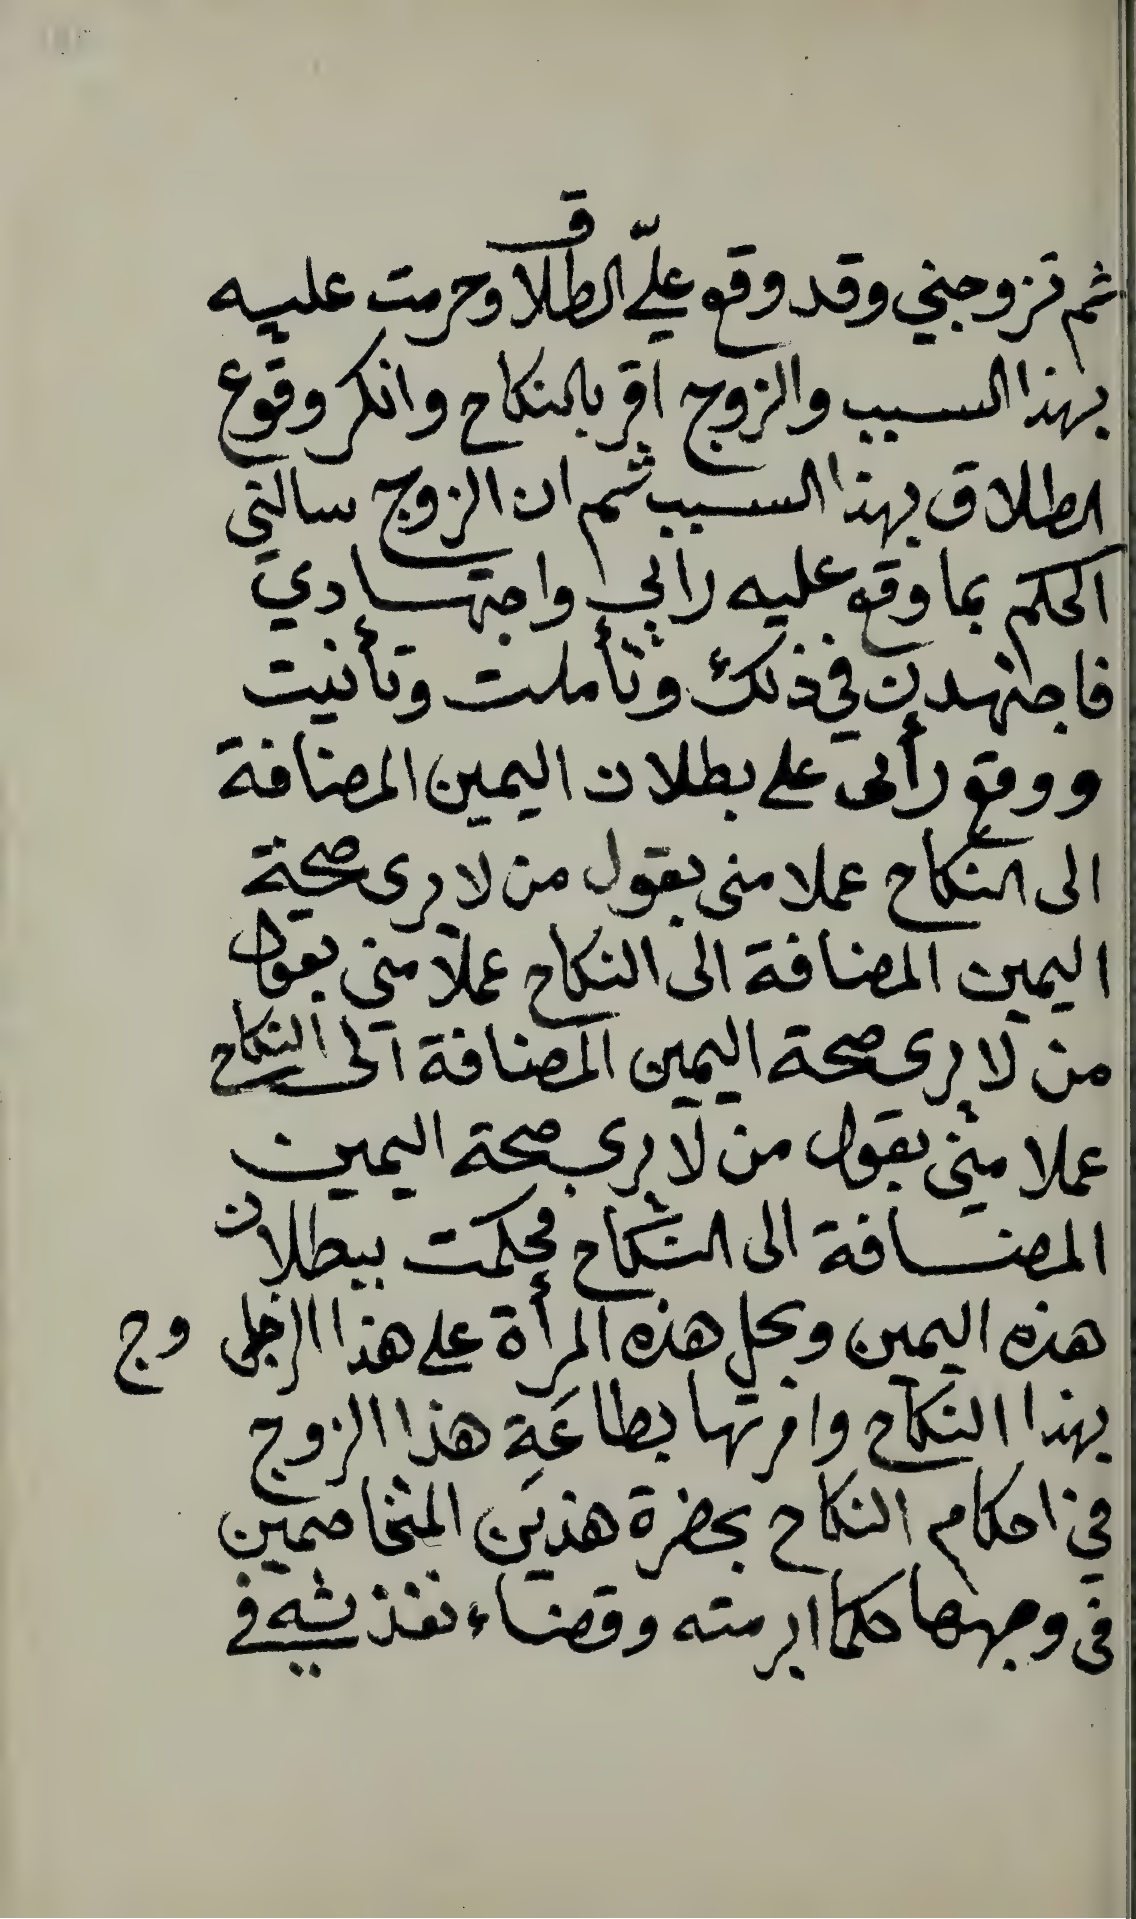 ثم تزوجني وقد وقع عليّ الطلاق وحرمت عليه
بهذا السبب والزوج اقر بالنكاح وانكر وقوع
الطلاق بهذا السبب ثم ان الزوج سالتي
الحكم بما وقع عليه رايي واجتهادي
فاجتهدت في ذلك وتأملت وتأنيت
ووقع رأيي على بطلان اليمين المضافة
الى النكاح عملا مني بقول من لا يرى صحة
اليمين المضافة الى النكاح عملا مني بقول
من لا يرى صحة اليمين المضافة الى النكاح
عملا مني بقول من لا يرى صحة اليمين
المضافة الى النكاح فحكمت ببطلان
هذه اليمين وبحل هذه المرأة على هذا الرجل وج
بهذا النكاح وامرتها بطاعة هذا الزوج
في احكام النكاح بحضرة هذين المتخاصمين
في وجهها حكما ابرمته وقضاء نفذيته في